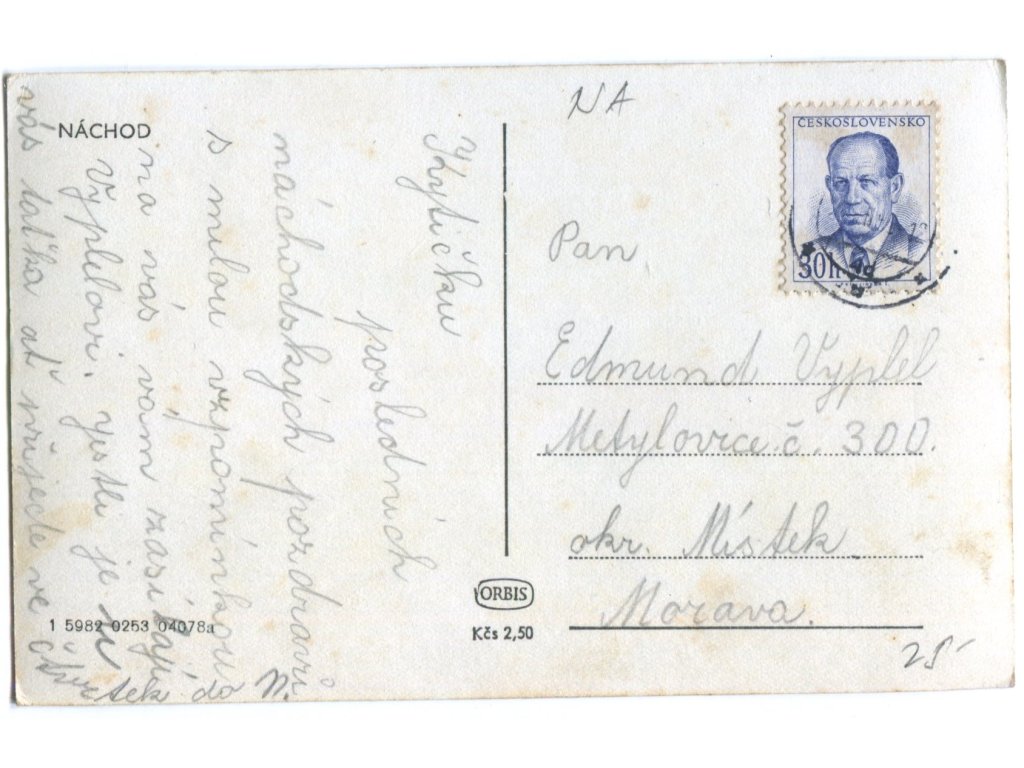 NÁCHOD
Kytičku
posledních
náchodských pozdravů
s milou vzpomínkou
na vás vám zasílají
Vyplelovi. jestli je u
vás taťka ať přijede ve
čtvrtek do N.
1 5982 0253 04078a
NA
ČESKOSLOVENSKO
30h
Pan
Edmund Vyplel
Metylovice č. 300.
okr. Místek
Morava.
ORBIS
Kčs 2,50
25